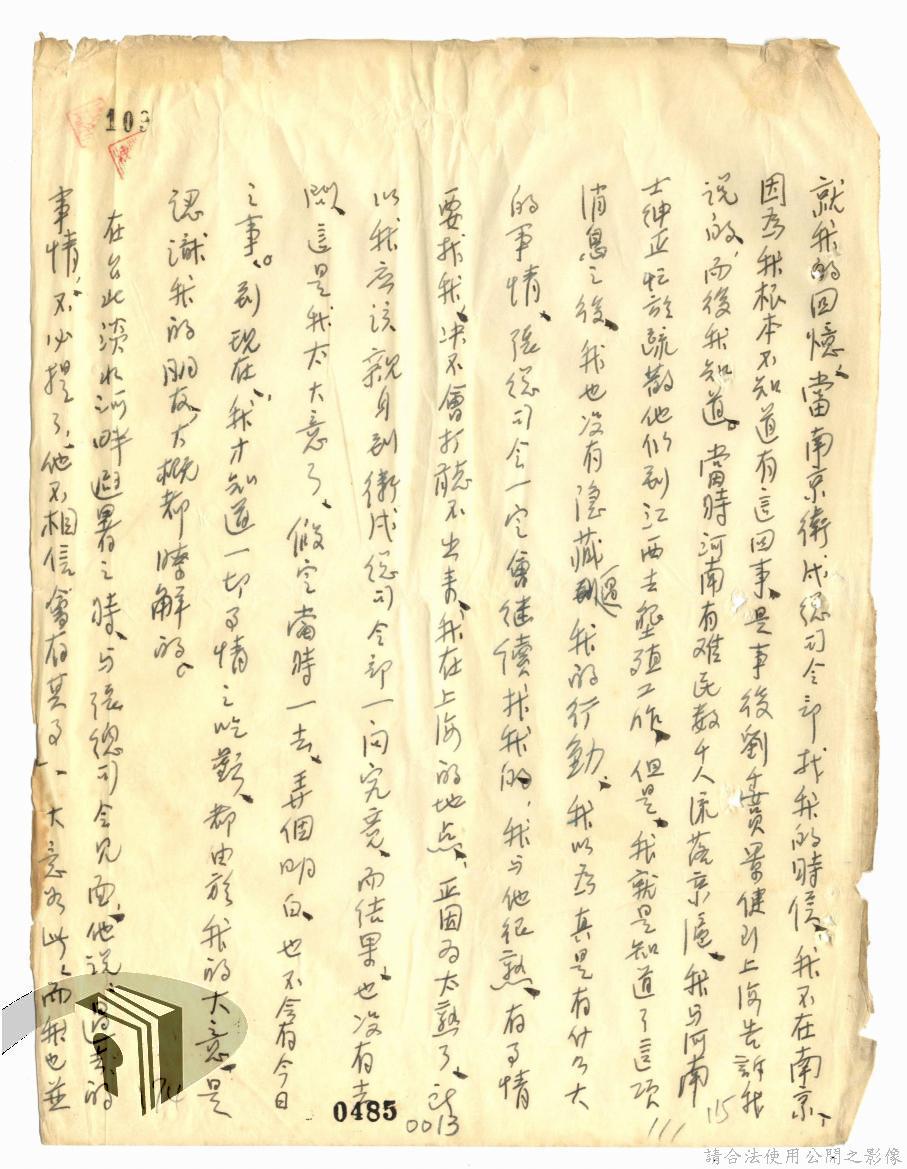 就我的回憶、當南京衛戍總司令部找我的時候、我不在南京、
因為我根本不知道有這回事、是事後劉黃景健到上海告訴我
說的、而後我知道。當時河南有难民数千人流落京滬、我与河南
士紳正忙於疏散他们到江西去墾殖工作、但是、我就是知道了這項
消息之後、我也没有隐藏過我的行動、我以為真是有什么大
的事情、張總司令一定會继續找我的、我与他很熟、有事情
要找我、决不會打聽不出来、我在上海的地点、正因为太熟了、所
以我应该親身到衛戍總司令部一问究竟、而结果、也没有去
問、這是我太大意了、假定當時一去、弄個明白、也不会有今日
之事。到现在、我才知道一切事情之吃虧、都由於我的大意、是
認識我的朋友、大概都瞭解的。
在台北淡水河畔避暑之時、与張總司令见面、他说、過去的
事情、不必提了、他不相信會有其事、大意如此、而我也並
109
74
0485
0013
111
115
請合法使用公開之影像